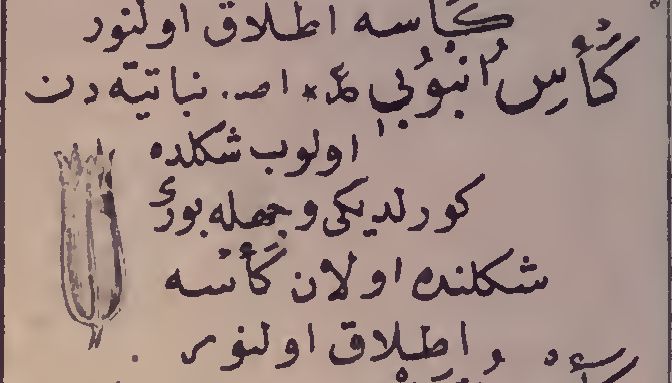 كأسه اطلاق اولنور
كَأْسِ اُنْبُوبِى * اص. نباتيه دن
اولوب شكلده
كورلديكى وجهله بورى
شكلنده اولان كأسه
اطلاق اولنور.